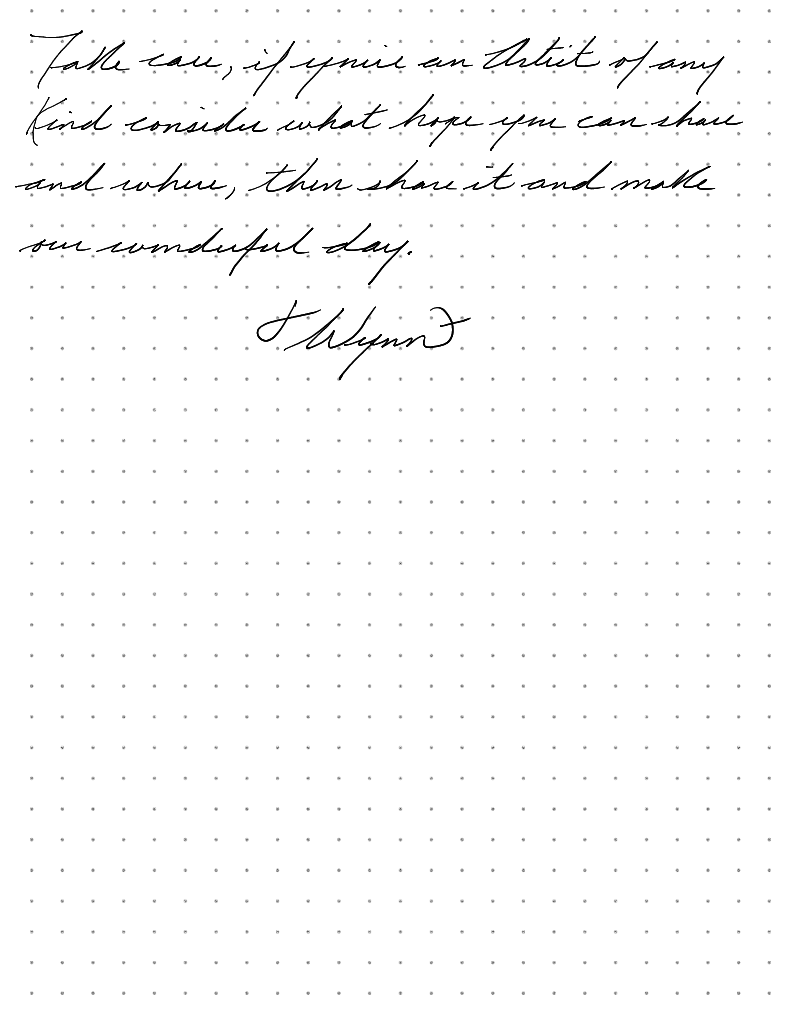 Take care, if you're an Artist of any
Kind consider what hope you can share
and where, then share it and make
our wonderful day.
Wynn